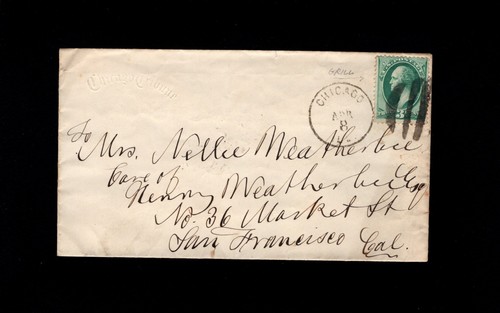 GRILL
CHICAGO
APR
8
3
To
Mrs. Nellie Weatherbee
Care of
Henry Weatherbee Esq
No. 36 Market St
San Francisco Cal.